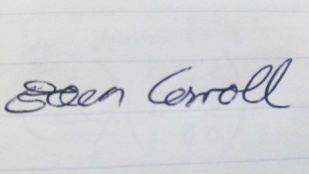 Sean Carroll